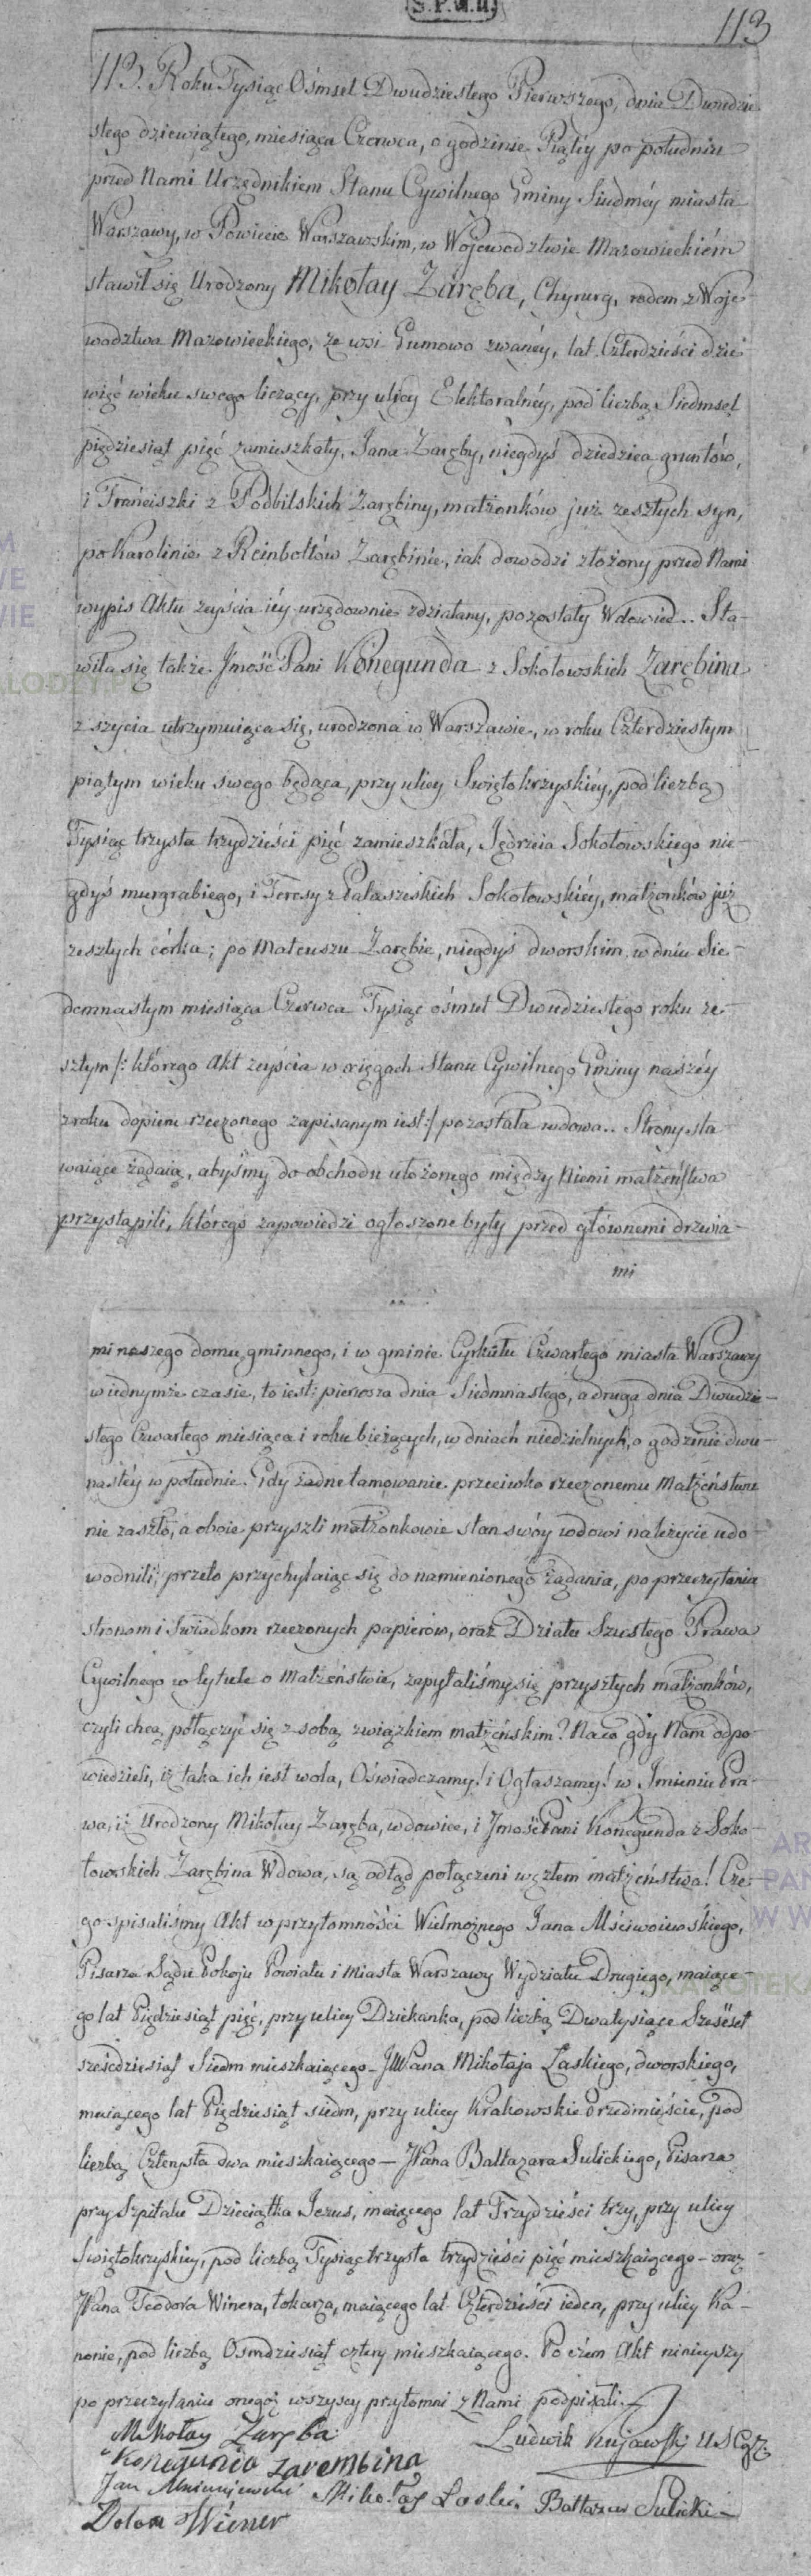 S.P.W.II.
113
113. Roku Tysiąc Ośmset Dwudziestego Pierwszego, dnia Dwudzie-
stego dziewiątego, miesiąca Czerwca, o godzinie Piątéy po południu
przed Nami Urzędnikiem Stanu Cywilnego Gminy Siudméy miasta
Warszawy, w Powiecie Warszawskim, w Wojewodztwie Mazowieckiém
stawił się Urodzony Mikołay Zaręba, Chyrurg, rodem z Woje-
wodztwa Mazowieckiego, ze wsi Gumowo zwanéy, lat Czterdzieści dzie-
więć wieku swego liczący, przy ulicy Elektoralnéy, pod liczbą Siedmset
pięдziesiąt pięć zamieszkały, Jana Zaręby, niegdyś dziedzica gruntów,
i Franciszki z Podbilskich Zarębiny, małżonków już zeszłych syn,
po Karolinie z Reinboltów Zarębinie, iak dowodzi złożony przed Nami
wypis Aktu zeyścia iéy urzędownie zdziałany, pozostały Wdowiec.. Sta-
wiła się także Jmość Pani Konegunda z Sokołowskich Zarębina
z szycia utrzymuiąca się, urodzona w Warszawie, w roku Czterdziestym
piątym wieku swego będąca, przy ulicy Swiętokrzyskiéy, pod liczbą
Tysiąc trzysta trzydzieści pięć zamieszkała, Jędrzeia Sokołowskiego nie-
gdyś murgrabiego, i Teresy z Pałaszeskich Sokołowskiéy, małżonków już
zeszłych córka; po Mateuszu Zarębie, niegdyś dworskim, w dniu Sie-
demnastym miesiąca Czerwca Tysiąc ośmset Dwudziestego roku ze-
szłym /: którego Akt zeyścia w xięgach Stanu Cywilnego Gminy naszéy
z roku dopiero rzeczonego zapisanym iest :/ pozostała wdowa.. Strony sta-
waiące żądaią, abyśmy do obchodu ułożonego między Niemi małżeństwa
przystąpili, którego zapowiedzi ogłoszone były przed głównemi drzwia-
mi
mi naszego domu gminnego, i w gminie Cyrkułu Czwartego miasta Warszawy
w iednymże czasie, to iest: pierwsza dnia Siedmnastego, a druga dnia Dwudzie-
stego Czwartego miesiąca i roku bieżących, w dniach niedzielnych, o godzinie dwu-
nastéy w południe. Gdy żadne tamowanie przeciwko rzeczonemu Małżeństwu
nie zaszło, a oboie przyszli małżonkowie stan swóy wdowi należycie udo-
wodnili, przeto przychylaiąc się do namienionego żądania, po przeczytaniu
stronom i Swiadkom rzeczonych papierów, oraz Działu Szustego Prawa
Cywilnego w tytule o Małżeństwie, zapytaliśmy się przyszłych małżonków,
czyli chcą połączyć się z sobą związkiem małżeńskim? Na co gdy Nam odpo-
wiedzieli, iż taka ich iest wola, Oświadczamy! i Ogłaszamy! w Jmieniu Pra-
wa, iż Urodzony Mikołay Zaręba, wdowiec, i Jmość Pani Konegunda z Soko-
łowskich Zarębina Wdowa, są odtąd połączeni węzłem małżeństwa! Cze-
go spisaliśmy Akt w przytomności Wielmożnego Jana Mściwoiewskiego,
Pisarza Sądu Pokoju Powiatu i Miasta Warszawy Wydziału Drugiego, maiące-
go lat Pięćdziesiąt pięć, przy ulicy Dziekanka, pod liczbą Dwatysiące Sześćset
sześćdziesiąt Siedm mieszkaiącego – JWPana Mikołaja Laskiego, dworskiego,
maiącego lat Pięćdziesiąt siedm, przy ulicy Krakowskie Przedmieście, pod
liczbą Czterysta dwa mieszkaiącego – JPana Baltazara Sulickiego, Pisarza
przy Szpitalu Dzieciątka Jezus, maiącego lat Trzydzieści trzy, przy ulicy
Swiętokrzyskiey, pod liczbą Tysiąc trzysta trzydzieści pięć mieszkaiącego – oraz
JPana Teodora Winera, tokarza, maiącego lat Czterdzieści ieden, przy ulicy Ka-
nonie, pod liczbą Osmdziesiąt cztery mieszkaiącego. Po czém Akt ninieyszy
po przeczytaniu onegoż wszyscy przytomni z Nami podpisali.
Mikołay Zaręba Ludwik Kujawski USCg7.
Konegunda Zarembina
Jan Mikołay Laski Baltazar Sulicki
Wiener